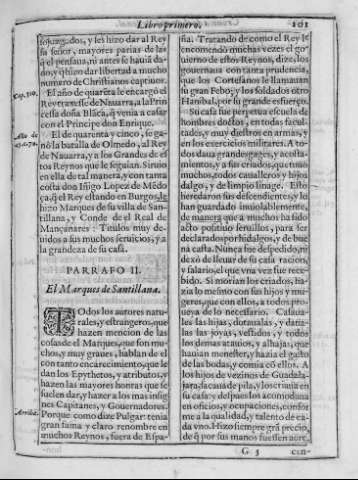 Libro primero. 101
sojuzgados, y les hizo dar al Rey
su señor, mayores parias de las
q̃l pensaua, ni antes se hauia dado,
y q̃ hizo dar libertad a mucho
numero de Christianos captiuos.
Cap. 310.
El año de quarẽta le encargó el
Rey traxesse de Nauarra, a la Princesa
doña Blãca, q̃ venia a casar
con el Principe don Enrique.
Año de
El de quarenta y cinco, se ganó
la batalla de Olmedo, al Rey
de Nauarra, y a los Grandes destos
Reynos que le seguian. Siruio
en ella de tal manera, y con tanta
costa don Iñigo Lopez de Mẽdoça,
q̃ el Rey estando en Burgos, le
hizo Marques de su villa de Santillana,
y Conde de el Real de
Mançanares: Titulos muy deuidos
a sus muchos seruicios, y a
la grandeza de su casa.
PARRAFO II.
El Marques de Santillana.
TOdos los autores naturales,
y estrangeros, que
hazen mencion de las
cosas de el Marques, que son muchos,
y muy graues, hablan de el
con tanto encarecimiento, que le
dan los Epythetos, y atributos, y
hazen las mayores honras que se
suelen dar, y hazer a los mas insignes
Capitanes, y Gouernadores.
Arriba.
Porque como dize Pulgar: tenia
gran fama y claro renombre en
muchos Reynos, fuera de Espa-
ña. Tratando de como el Rey le
encomendó muchas vezes el gouierno
de estos Reynos, dize, los
gouernaua con tanta prudencia,
que los Cortesanos le llamauan
su gran Febo, y los soldados otro
Hanibal, por su grande esfuerço.
Su casa fue perpetua escuela de
hombres doctos, en todas facultades,
y muy diestros en armas, y
en los exercicios militares. A todos
daua grandes gages, y acostamiento,
y a sus criados, que eran
muchos, todos caualleros y hijos
dalgo, y de limpio linage. Esto
heredaron sus descendientes, y le
han guardado inuiolablemente,
de manera que a muchos ha sido
acto positiuo seruillos, para ser
declarados por hidalgos, y de buena
casta. Nunca fue despedido, ni
dexó de lleuar de su casa racion,
y salario, el que vna vez fue recebido.
Si morian los criados, hazia
lo mesmo con sus hijos y mugeres,
que con ellos, a todos proueya
de lo necessario. Casauales
las hijas, dotaualas, y daualas
las joyas, vestidos, y todos
los demas atauios, y alhajas, que
hauian menester, y hazia el gasto
de las bodas, y comia cõ ellos. A
los hijos de vezinos de Guadalajara,
sacaua de pila, y los criaua en
su casa; y despues los acomodaua
en oficios, y ocupaciones, conforme
a la qualidad, y talento de cada
vno. Hizo siempre grã precio,
de q̃ por sus manos fuessen acre-
G 5 cen-